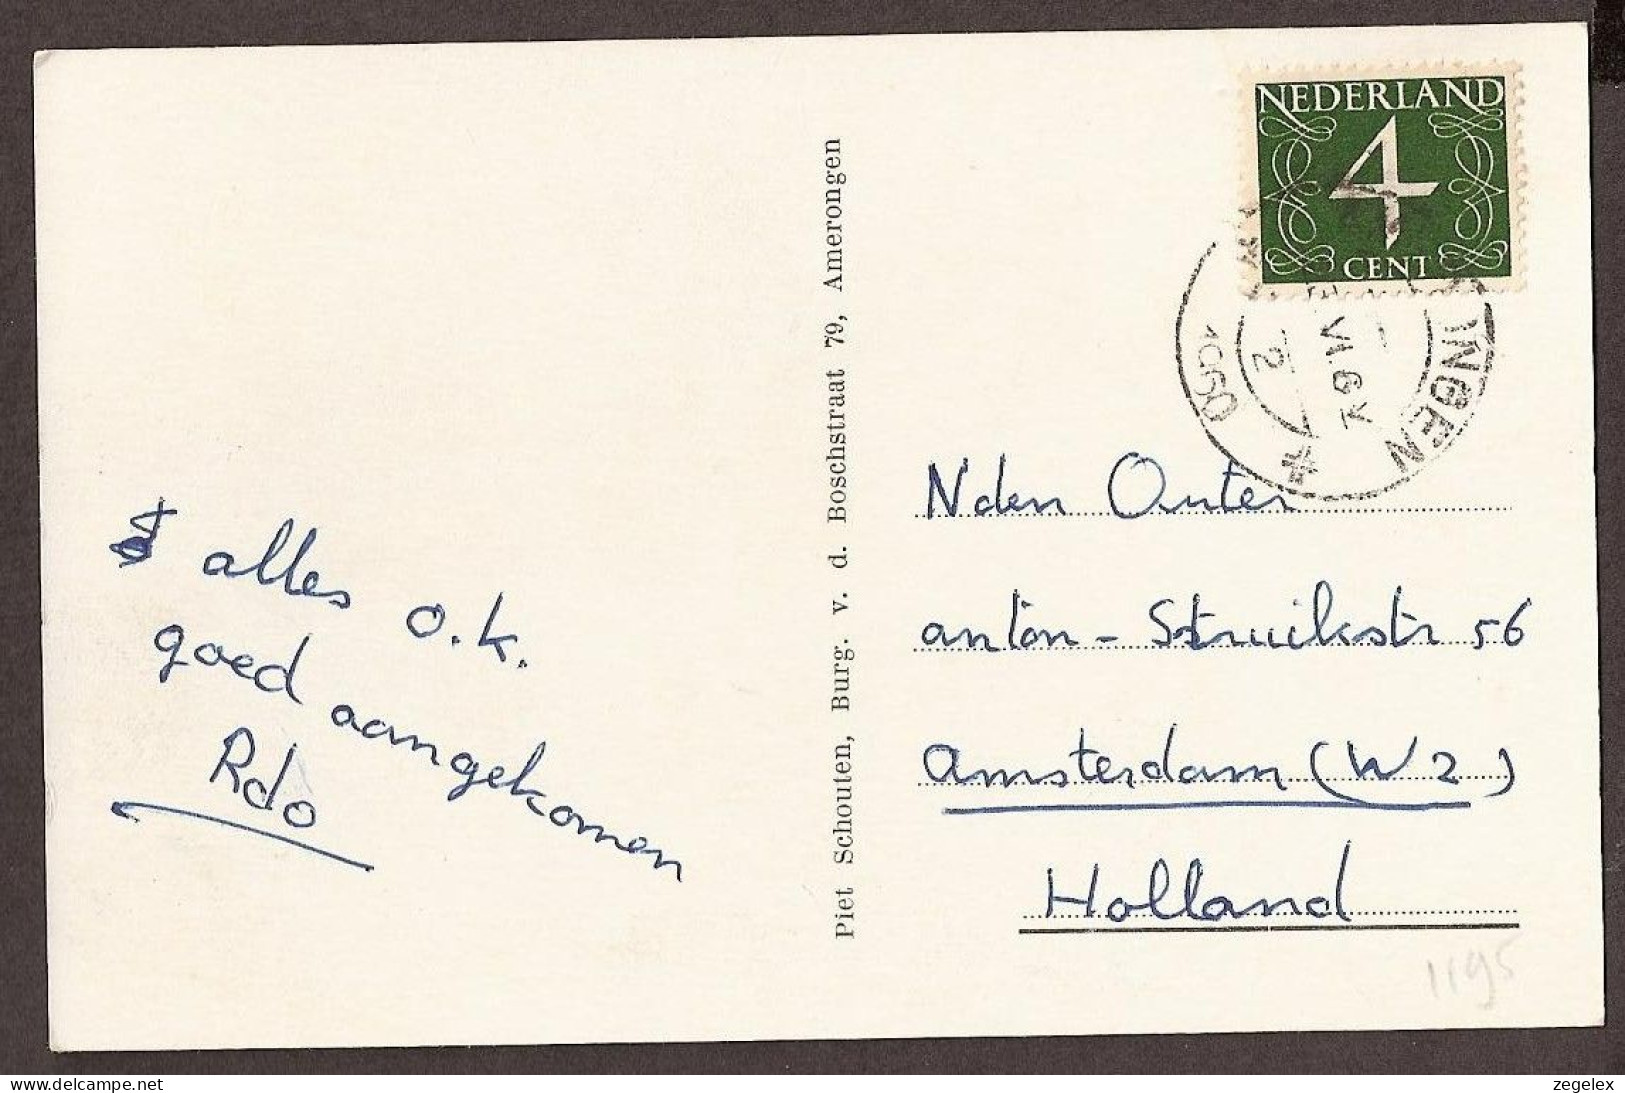 NEDERLAND
4
CENT
1960
2
INGEN
Piet Schouten, Burg. v. d. Boschstraat 79, Amerongen
alles o.k.
goed aangekomen
Rdo
N den Outer
anton - Struikstr 56
Amsterdam (W2)
Holland
1195
delcampe.net
zegelex